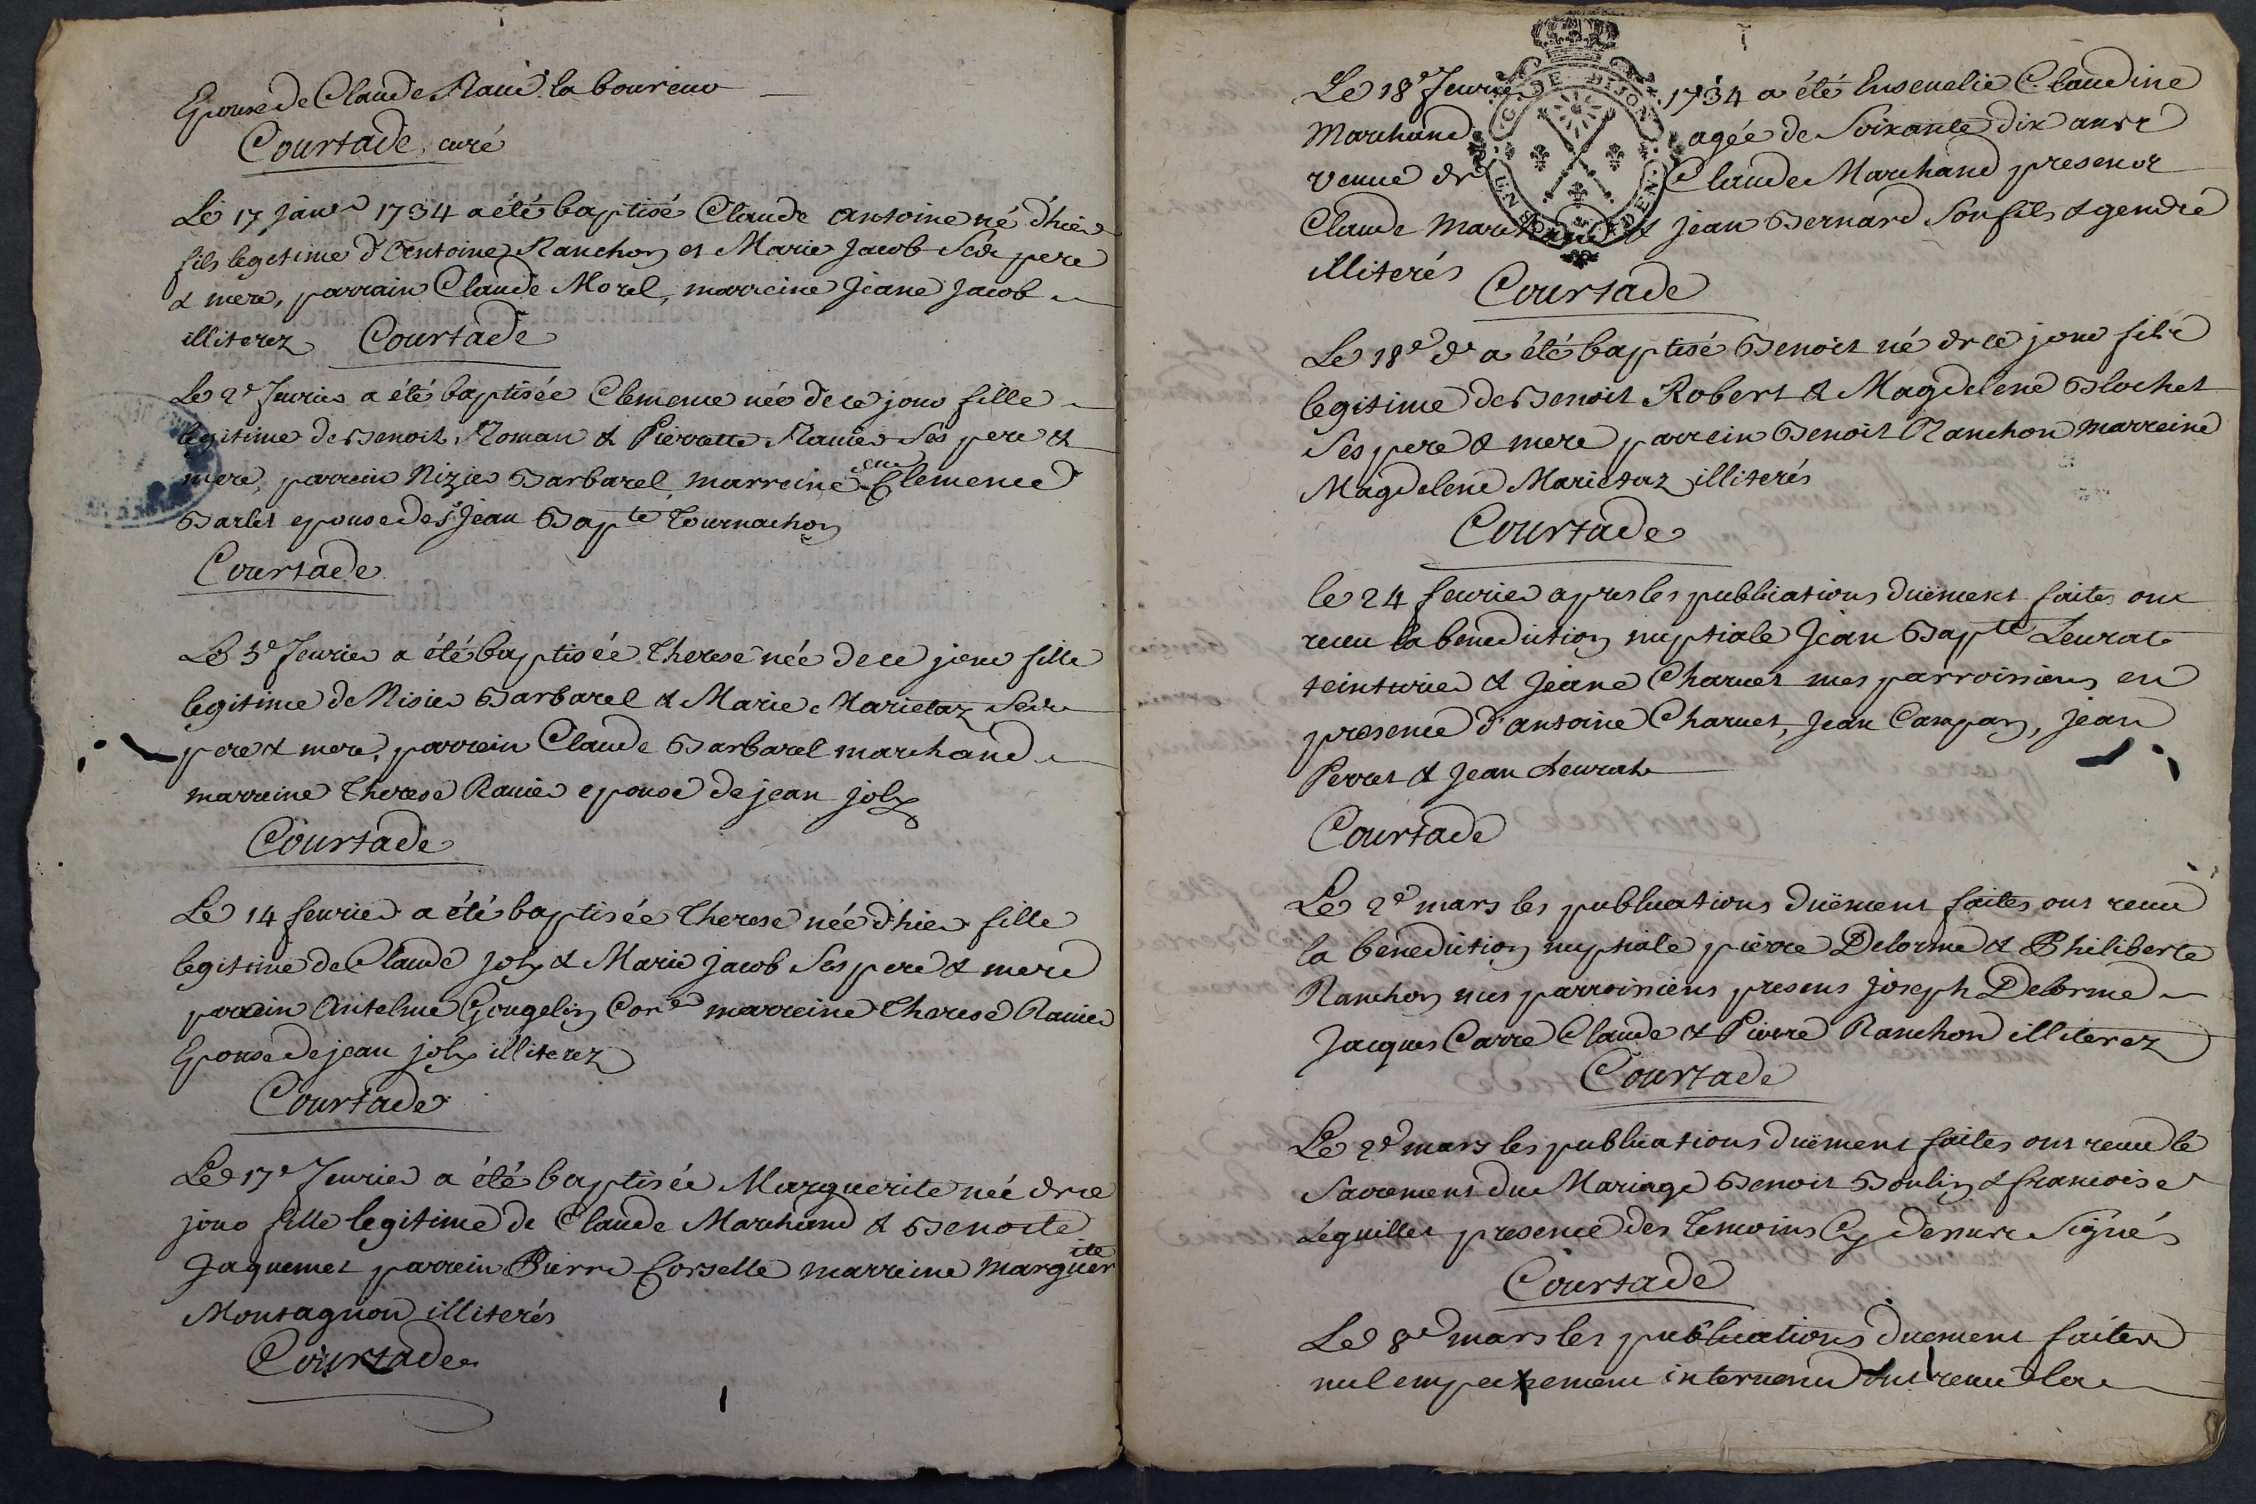 Epouse de Claude Ravié laboureur
Courtade, curé
Le 17 janvr 1734 a été baptisé Claude Antoine né d'hier
fils legitime d'Antoine Ranchon et Marie Jacob Ses pere
& mere, parrain Claude Morel, marreine Jeane Jacob
illiterez Courtade
Le 2e fevrier a été baptisée Clemence née de ce jour fille
legitime de Benoit Roman & Pierrette Ravier Ses pere &
mere, parrein Nizier Barbarel, marreine Clemence
Barlet epouse de Sr Jean Bapte Tournachon
Courtade
Le 3e fevrier a été baptisée Therese née de ce jour fille
legitime de Nisier Barbarel & Marie Marietaz Ses
pere & mere, parrein Claude Barbarel marchand
marreine Therese Ravier epouse de jean joly
Courtade
Le 14 fevrier a été baptisée Therese née d'hier fille
legitime de Claude joly & Marie jacob Ses pere & mere
parrein Antelme Gougelin marreine Therese Ravier
Epouse de jean joly illiterez
Courtade
Le 17e fevrier a été baptisée Marguerite née de ce
jour fille legitime de Claude Marchand & Benoite
Jaquemet parrein Pierre Corselle marreine Marguerite
Montagnon illiterés
Courtade
G. DE DIJON
Le 18e fevrier 1734 a été Ensevelie Claudine
Marchand agée de Soixante dix ans
veuve de Claude Marchand presens
Claude Marchand & jean Bernard Son fils & gendre
illiterés Courtade
Le 18e dt a été baptisé Benoit né de ce jour fils
legitime de Benoit Robert & Magdelene Blochet
Ses pere & mere parrein Benoit Ranchon marreine
Magdelene Marietaz illiterés
Courtade
le 24 fevrier apres les publications duëment faites ont
receu la benediction nuptiale Jean Bapte Leurat
teinturier & Jeane Charvet mes parroissiens en
presence d'antoine Charvet, Jean Campan, jean
Perret & Jean Leurat
Courtade
Le 2e mars les publications duëment faites ont receu
la benediction nuptiale pierre Delorme & Philiberte
Ranchon mes parroissiens presens joseph Delorme
Jacques Carre Claude & Pierre Ranchon illiterez
Courtade
Le 2e mars les publications duëment faites ont receu le
Sacrement du Mariage Benoit Boulin & francoise
Leguillet presence des Temoins Cy dessus Signés
Courtade
Le 8e mars les publications duement faites
nul empechement intervenu ont receu la